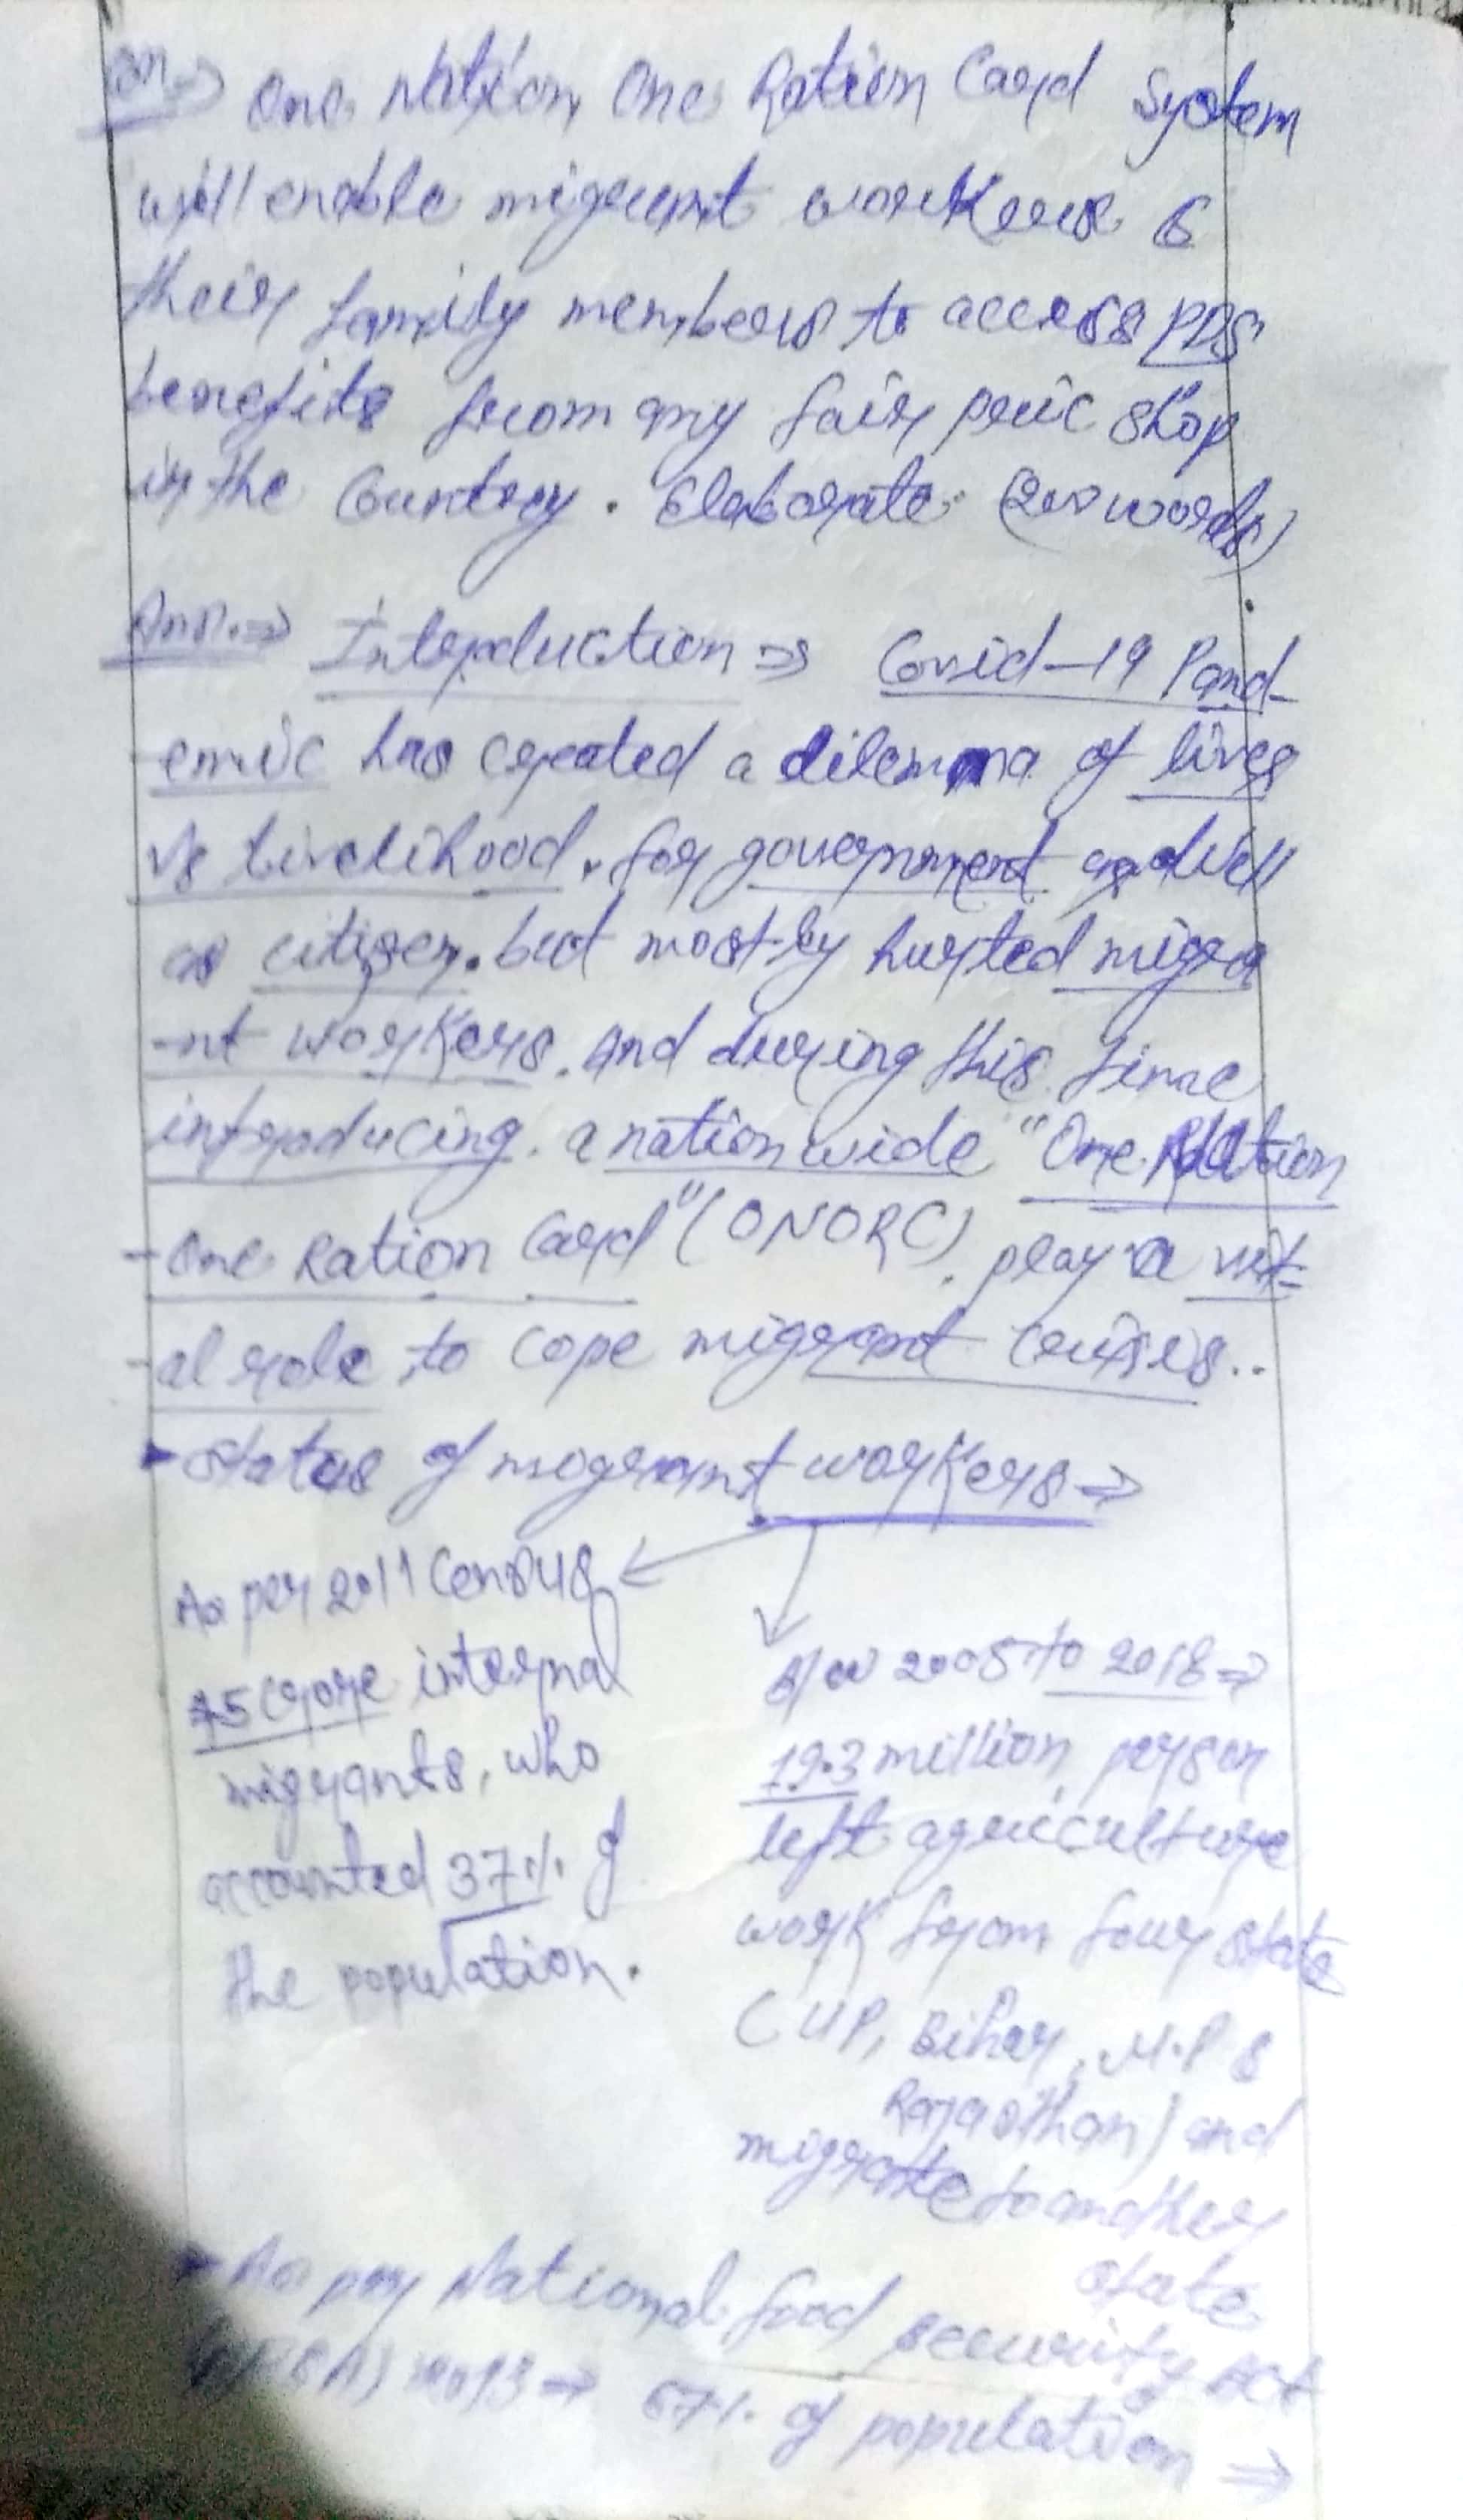 Qn.⇒ One Nation One Ration Card System
will enable migrant workers &
their family members to access PDS
benefits from any fair pric shop
in the Country. Elaborate. (200 words)
Ans.⇒ Introduction ⇒ Covid-19 Pand-
emic has created a dilemma of lives
vs livelihood. for government as well
as citizen. but mostly hurted migra
-nt workers. and during this time
introducing a nationwide "One Nation
- One Ration Card" (ONORC). play a vit-
-al role to cope migrant crisis..
▸ Status of migrant workers ⇒
As per 2011 Census
45 crore internal
migrants, who
accounted 37% of
the population.
B/w 2005 to 2018 ⇒
19.3 million person
left agriculture
work from four state
(UP, Bihar, M.P &
Rajasthan) and
migrate to another
state
▸ As per National food security Act
(NFSA) 2013 ⇒ 67% of population ⇒